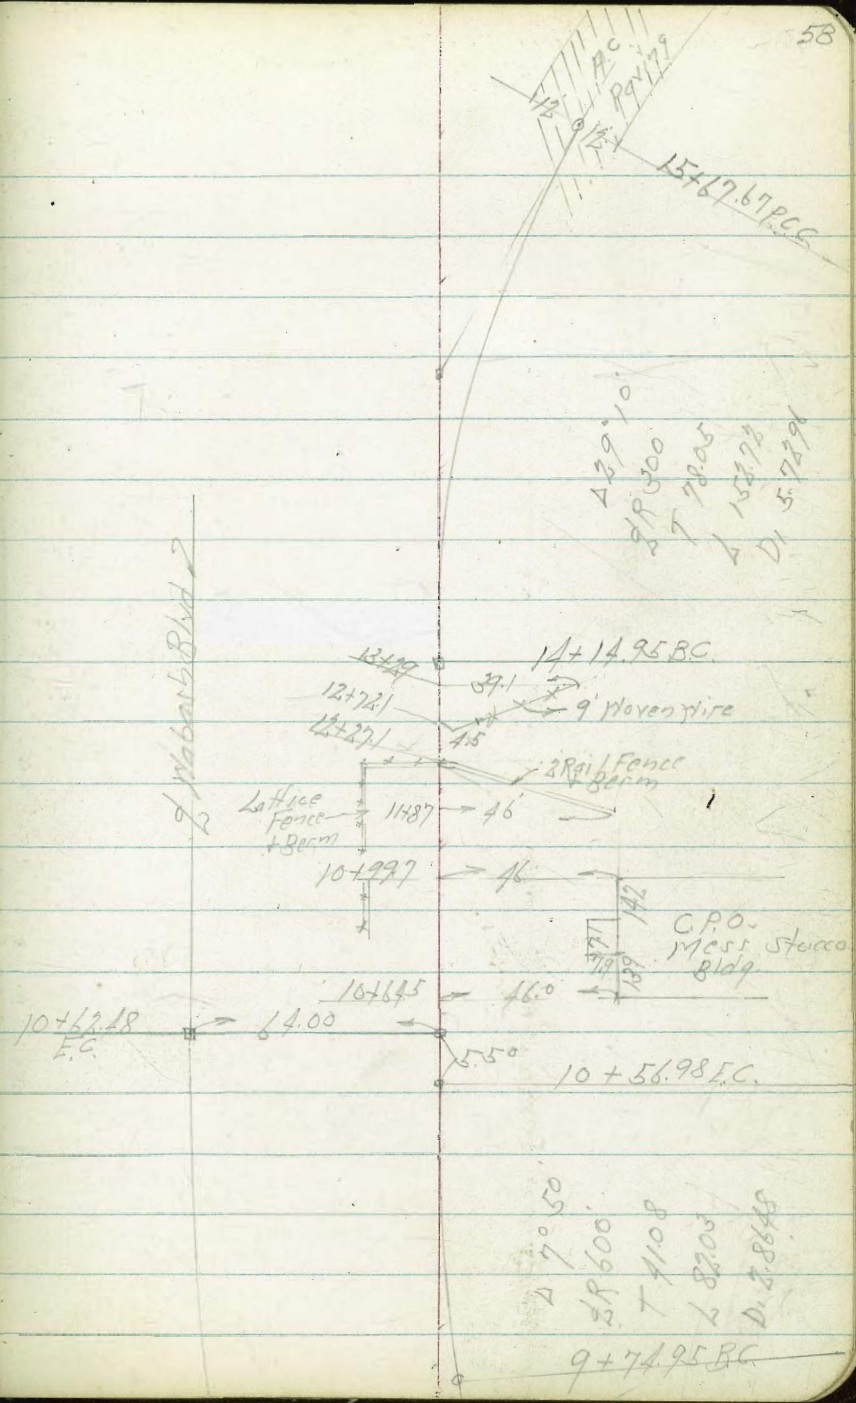 58
A.C.
12
12
15+67.67 P.C.C.
Δ 29° 10'
℄ R 300
T 78.05
L 152.72
D1 5.7296
℄ Wabash Blvd
14+14.95 B.C.
13+29
39.1
12+72.1
9' Woven Wire
12+27.1
4.5
2 Rail Fence
+ Berm
Lattice
Fence
+ Berm
11+87
46
10+99.7
46
142
C.P.O.
Mess Stucco
Bldg.
7.9
139
10+64.5
46.0
10+62.48
E.C.
64.00
5.50
10+56.98 E.C.
Δ 7° 50'
℄ R 600'
T 41.08
L 82.03
D. 2.8648
9+74.95 B.C.